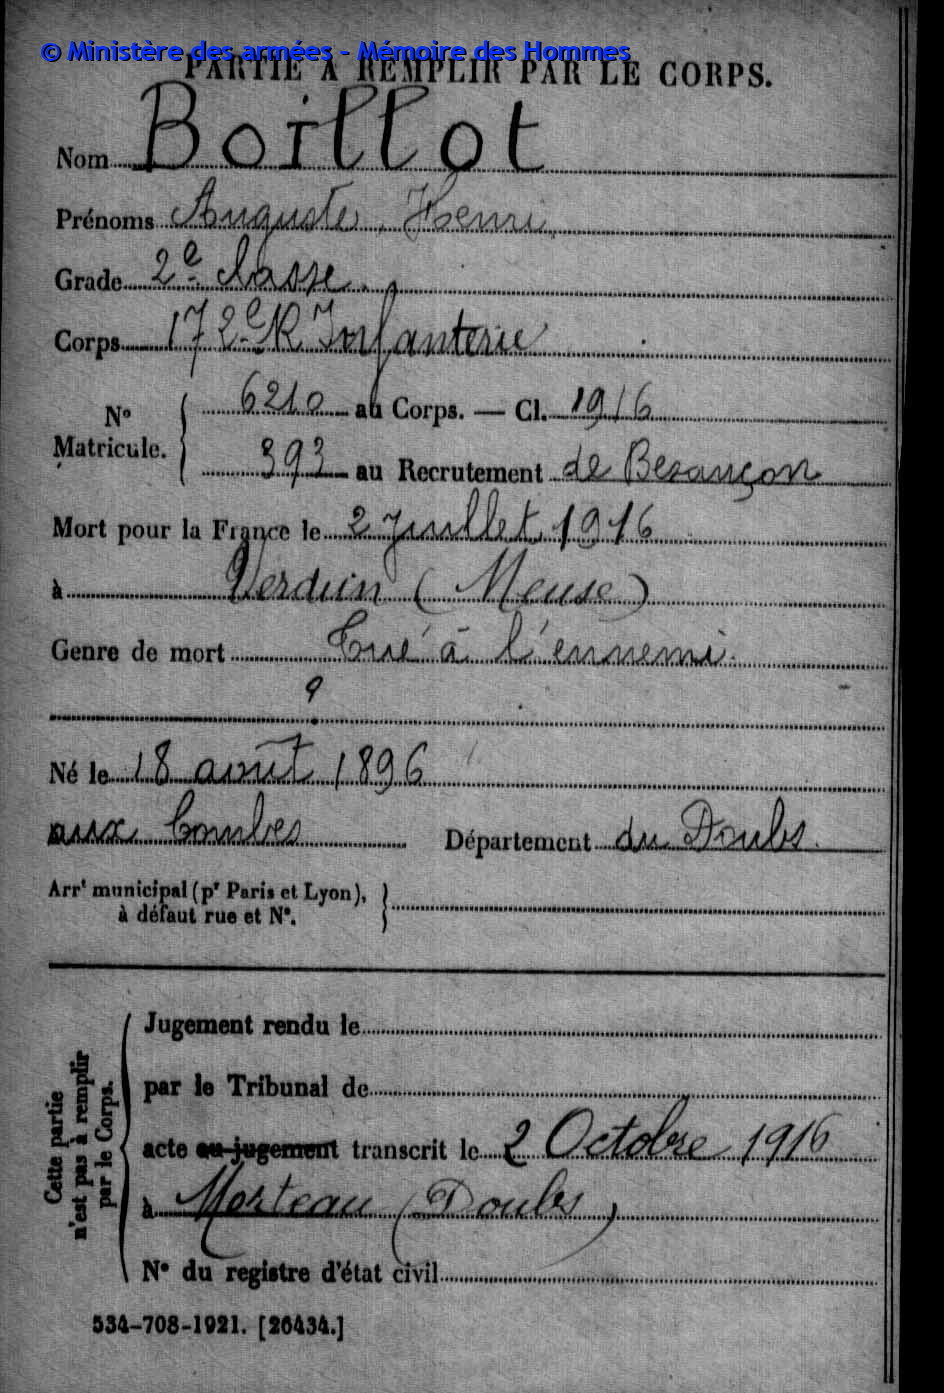 © Ministère des armées - Mémoire des Hommes
PARTIE À REMPLIR PAR LE CORPS.
Nom Boillot
Prénoms Auguste, Henri
Grade 2e classe.
Corps 172e R Infanterie
N° Matricule. 6210 au Corps. — Cl. 1916
393 au Recrutement de Besançon
Mort pour la France le 2 Juillet 1916
à Verdun (Meuse)
Genre de mort Tué à l'ennemi.
?
Né le 18 août 1896
aux Combes Département du Doubs.
Arrt municipal (pr Paris et Lyon),
à défaut rue et N°.
Cette partie
n'est pas à remplir
par le Corps.
Jugement rendu le
par le Tribunal de
acte ou jugement transcrit le 2 Octobre 1916
à Morteau (Doubs)
N° du registre d'état civil
534-708-1921. [26434.]